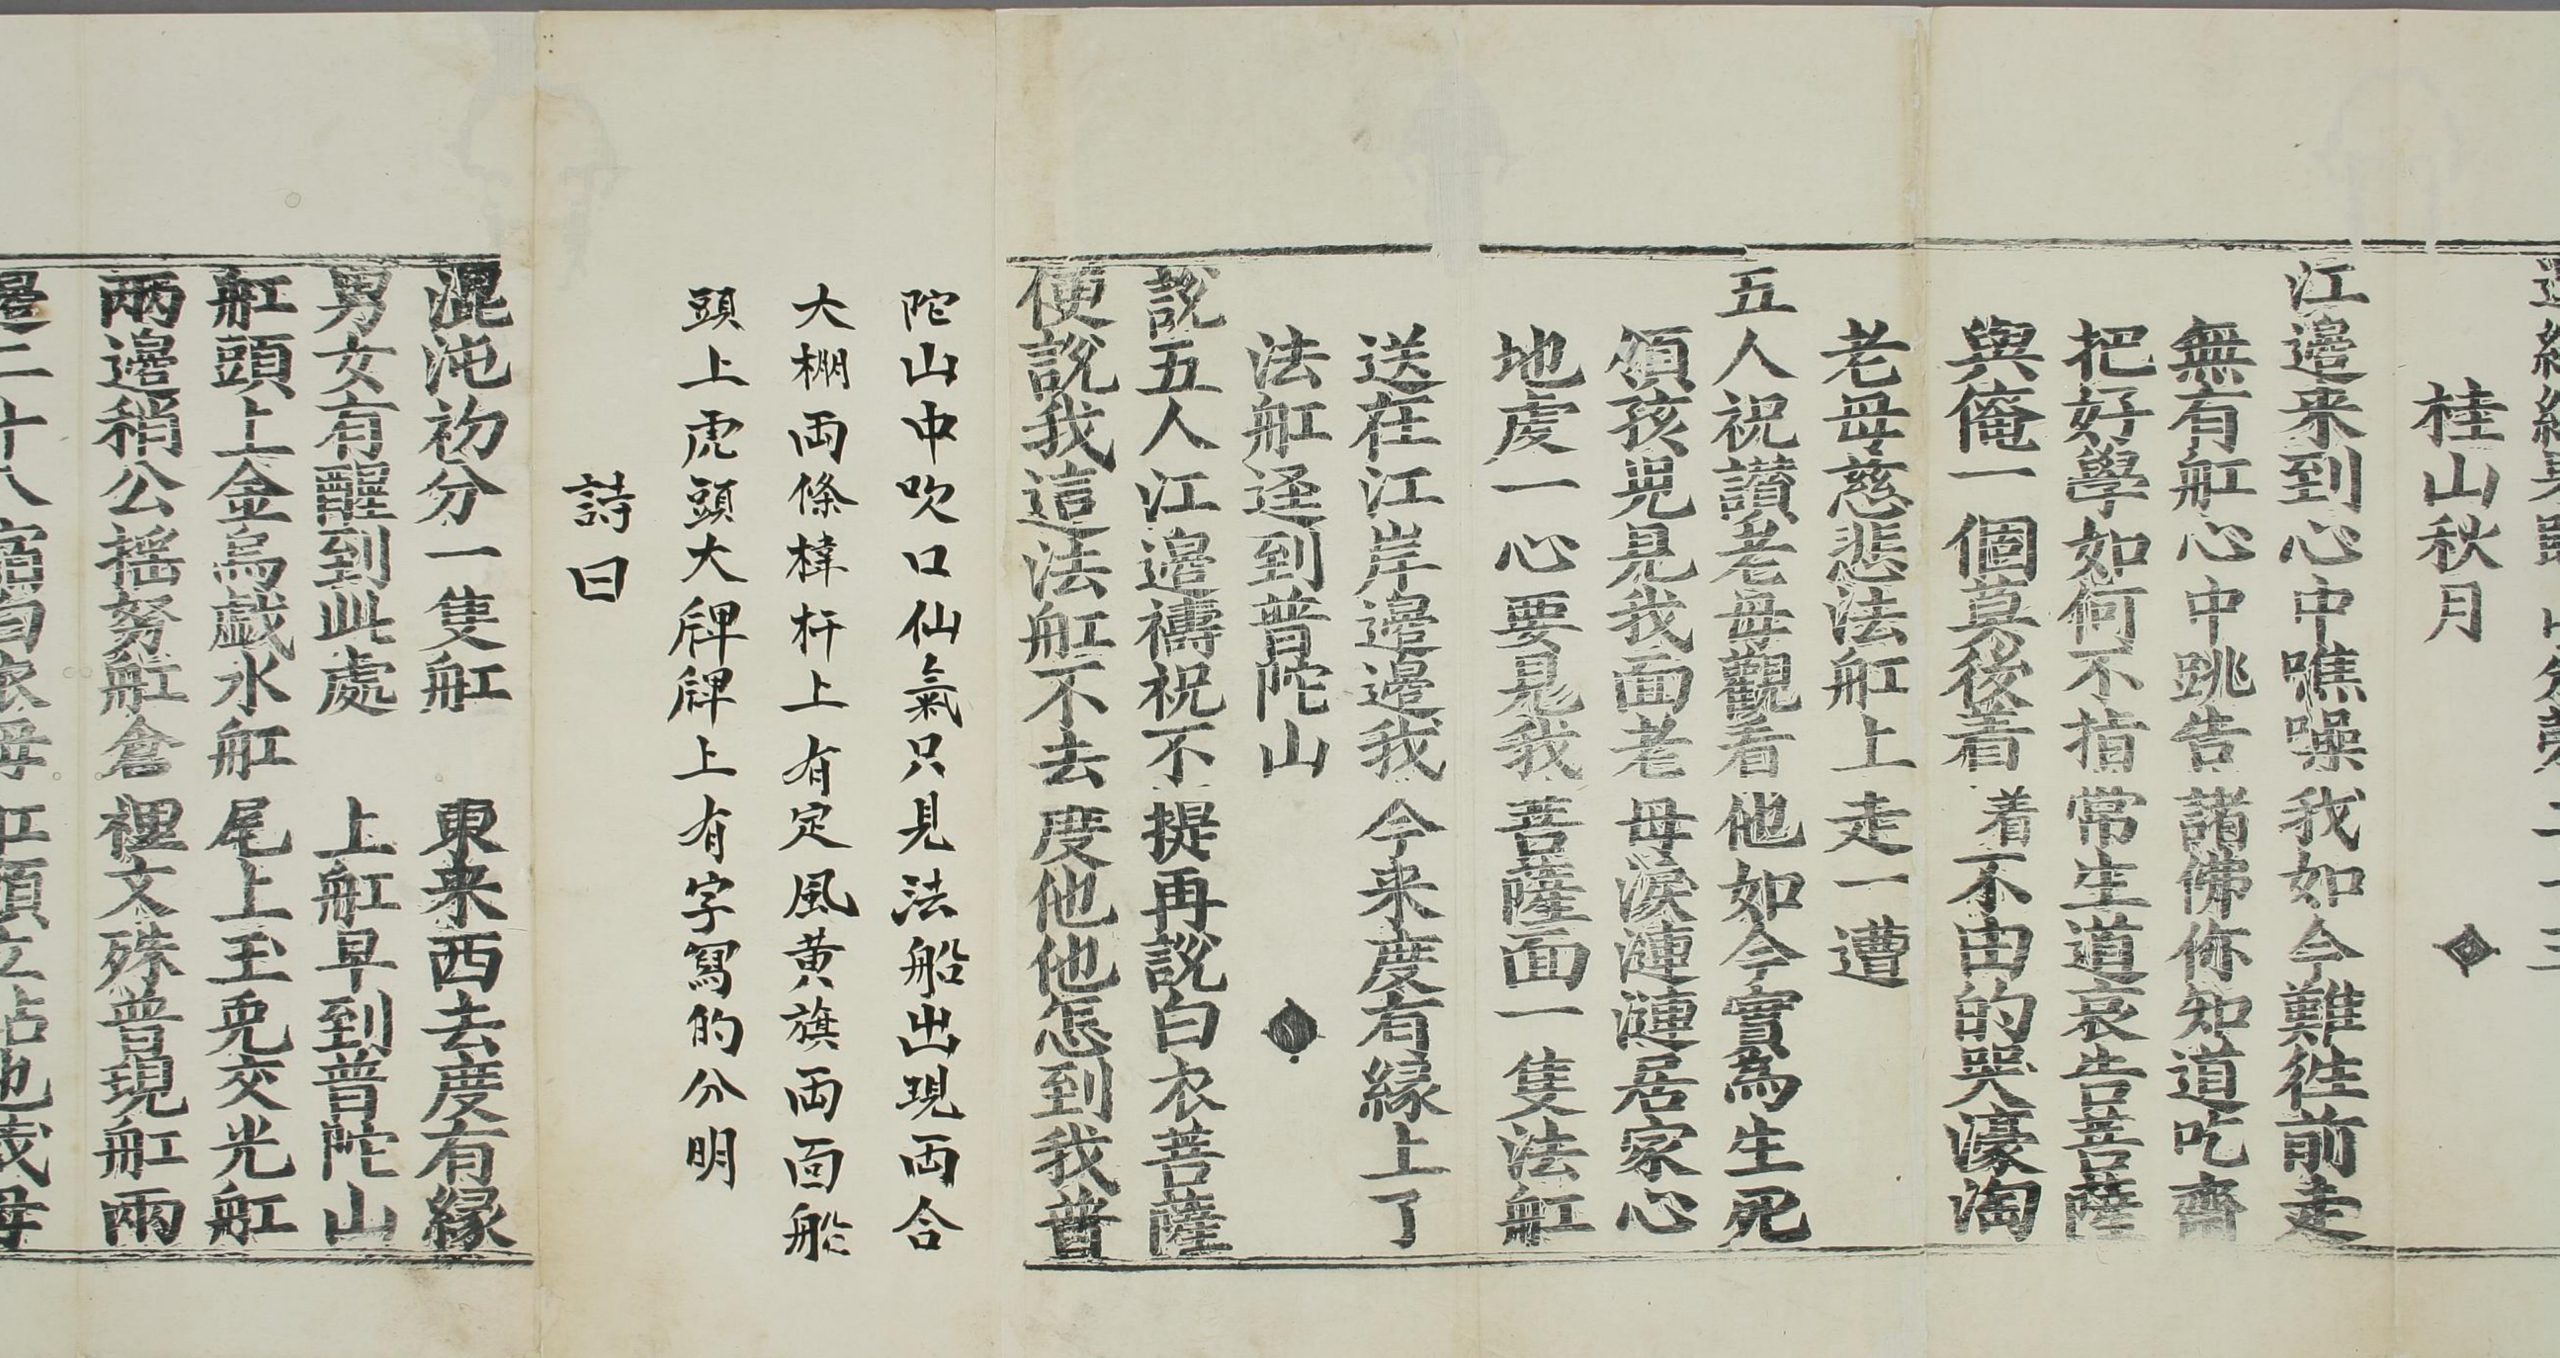 桂山秋月
江邊来到心中噍噪我如今難徃前走
無有舡心中跳告諸佛你知道吃齋
把好學如何不指常生道哀告菩薩
與俺一個莫後着着不由的哭濠淘
老母慈悲法舡上走一遭
五人祝讃老母觀看他如今實為生死
領孩兒見我面老母淚漣漣居家心
地虔一心要見我菩薩面一隻法舡
送在江岸邊邊我今来度有緣上了
法舡逕到普陀山
説五人江邊禱祝不提再説白衣菩薩
便説我這法舡不去度他他怎到我普
陀山中吹口仙氣只見法船出現両合
大棚両條桅杆上有定風黄旗両面船
頭上虎頭大牌牌上有字寫的分明
詩曰
混沌初分一隻舡東来西去度有緣
男女有醒到此處上舡早到普陀山
舡頭上金烏戯水舡尾上玉兎交光舡
兩邊稍公摇努舡倉裡文殊普現舡兩